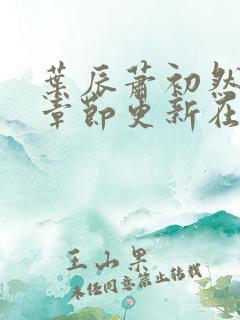 葉辰蕭初然
章節更新在
王山果
未经同意禁止转载